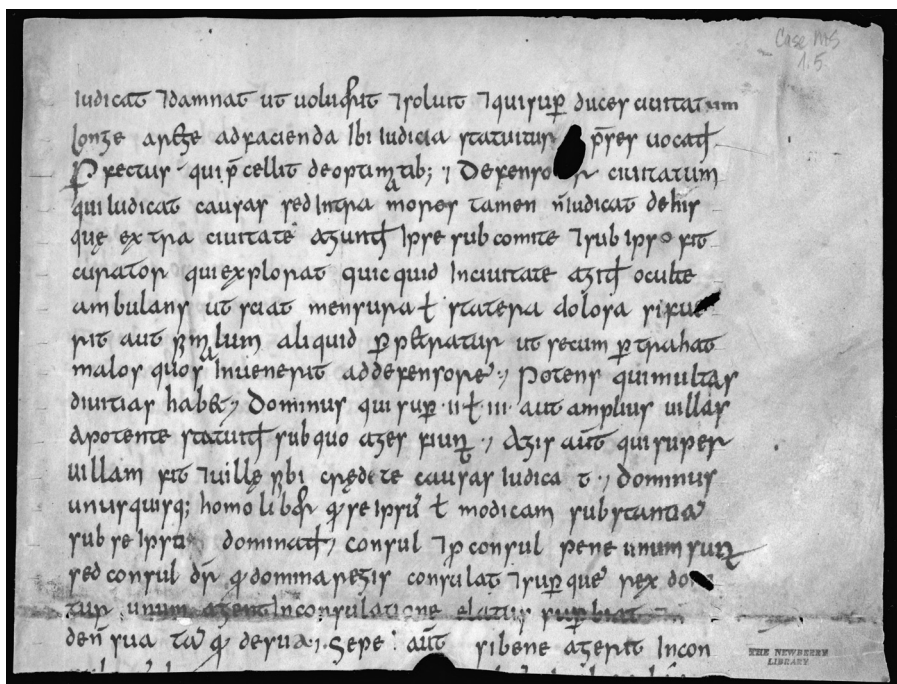 Case MS
1.5.
Iudicat ⁊ damnat ut uoluerit ⁊ soluit ⁊ qui sup̄ duces ciuitatum
longe ad facienda ibi iudicia statuitur p̄ses uocat̄
P̄fectus qui p̄cellit de optimatib; ⁊ Defensor ciuitatum
qui iudicat causas sed intra mores tamen n̄ iudicat de his
quę extra ciuitatē agunt̄ ipse sub comite ⁊ sub ipso fit
curator qui explorat quic quid in ciuitate agit̄ oculte
ambulans ut sciat mensura ł statera dolosa si fue
rit aut malum aliquid p̄petratur ut secum p̄trahat
malos quos inuenerit ad defensorē ; Potens qui multas
diuitias habet ; Dominus qui sup̄ ·ii· ł ·iii· aut amplius uillas
a potente statuit̄ sub quo ages fiunt ; Agis aūt qui super
uillam fit ⁊ uillę sibi credite causas iudicat ; Dominus
unusquisq; homo liber se ipsū ł modicam substantiā
sub se dominat̄ ; consul ⁊ p̄consul pene unum sunt
sed consul dr̄ domina regis consulat ⁊ sup̄ quē rex
tur unum agent In consulatione elatus sup̄biat
sua de sua .i. sepe aūt si bene agerit In con
THE NEWBERRY
LIBRARY